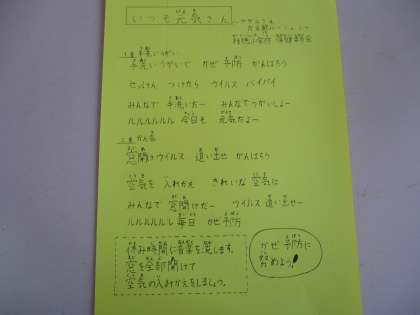 いつも元気さん
手洗いうがい
手洗いうがいで かぜ 予防 がんばろう
せっけん つけたら ウイルス バイバイ
みんなで 手洗いだー みんなでつかいしょー
ルルルルルル 今日も 元気だよー
かん気
窓開け ウイルス 追い出せ がんばろう
空気を 入れかえ きれいな 空気に
みんなで 窓開けだー ウイルス 追い出せー
ルルルルルル 毎日 かぜ 予防
休み時間に音楽を流します。
窓を全部開けて
空気の入れかえをしましょう。
かぜ 予防に
努めよう!